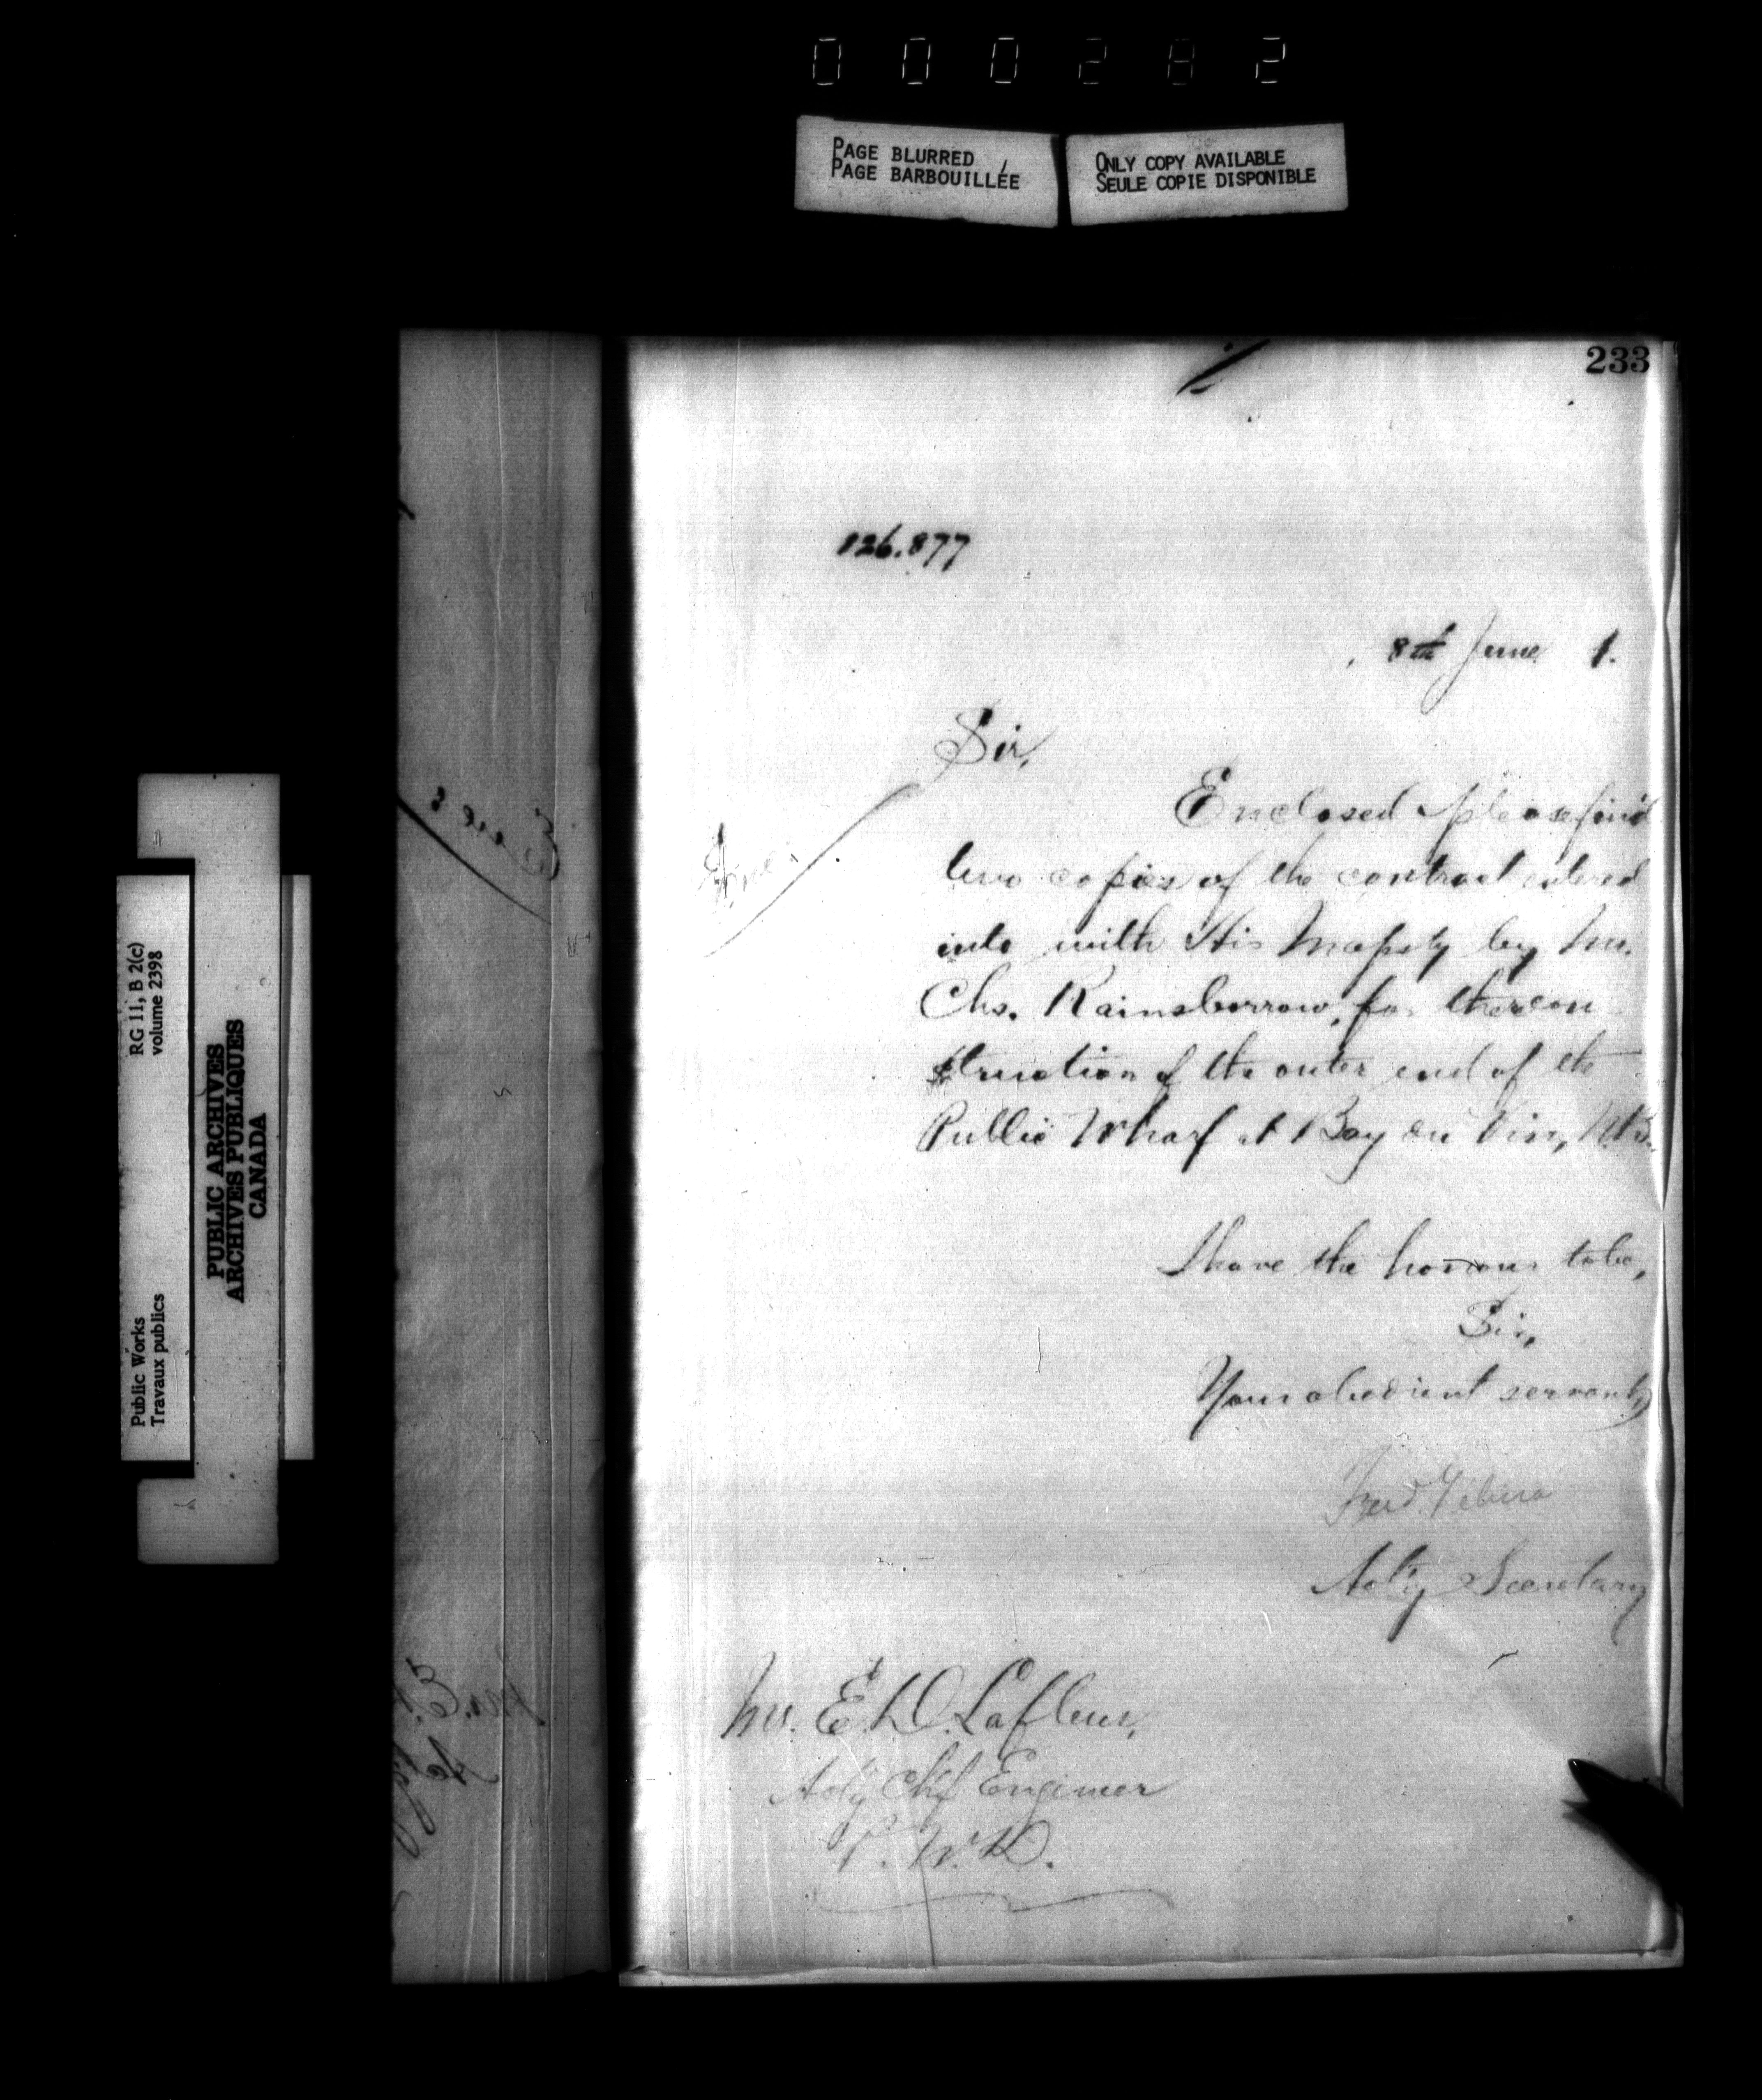 000282
PAGE BLURRED
PAGE BARBOUILLÉE
ONLY COPY AVAILABLE
SEULE COPIE DISPONIBLE
RG 11, B 2(c)
volume 2398
Public Works
Travaux publics
PUBLIC ARCHIVES
ARCHIVES PUBLIQUES
CANADA
233
126.877
8th June 1.
Sir,
Enclosed please find
two copies of the contract entered
into with His Majesty by Mr.
Chs. Rainsborrow, for the recon-
struction of the outer end of the
Public Wharf at Bay du Vin, N.B.
I have the honour to be,
Sir,
Your obedient servant,
Fred.
Act'g Secretary
Mr. E. D. Lafleur,
Act'g Chf Engineer
P. W. D.